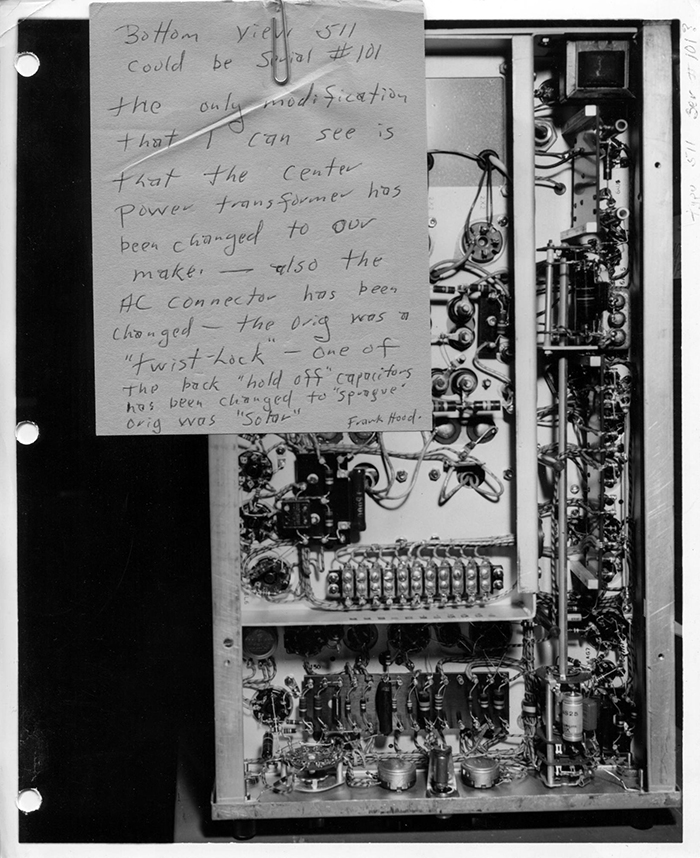 Bottom View 511
could be Serial #101
the only modification
that I can see is
that the center
power transformer has
been changed to our
make. — also the
AC connector has been
changed — the orig was a
"twist-Lock" — one of
the back "hold off" capacitors
has been changed to "sprague"
orig was "Solar"
Frank Hood.
Type 511 Ser #101?